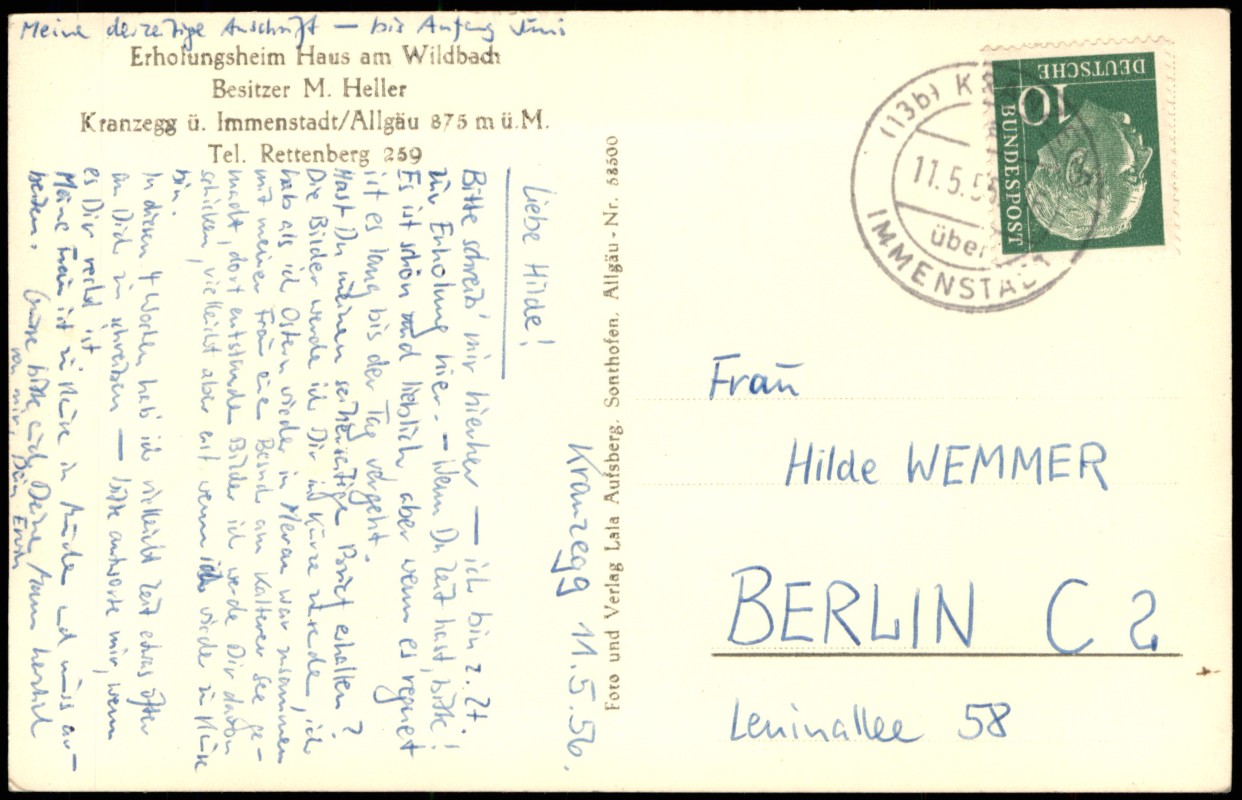 Meine derzeitige Anschrift — bis Anfang Juni
Erholungsheim Haus am Wildbach
Besitzer M. Heller
Kranzegg ü. Immenstadt/Allgäu 875 m ü.M.
Tel. Rettenberg 259
Kranzegg 11.5.56.
Liebe Hilde!
Bitte schreib' mir hierher — ich bin z. Zt.
zur Erholung hier. — Wenn Du Zeit hast, bitte!
Es ist schön und lieblich, aber wenn es regnet
ist es lang bis der Tag vergeht.
Hast Du meinen seitherige Brief erhalten?
Die Bilder werde ich Dir in Kürze senden, ich
hab als ich Ostern wieder in Meran war zusammen
mit meiner Frau eine Besuch am Kalterer See ge-
macht, dort entstanden Bilder ich werde Dir davon
schicken, vielleicht aber erst wenn ich wieder zu
bin.
In diesen 4 Wochen hab' ich vielleicht Zeit etwas öfter
an Dich zu schreiben — bitte antworte mir, wenn
es Dir recht ist
Meine Frau ist zu in und muss ar-
beiten. Grüsse bitte auch Deine Mann herzlich
von mir, Dein Erwin
Foto und Verlag Lala Aufsberg, Sonthofen, Allgäu - Nr. 58500
(13b) KRANZEGG
11.5.56
über
IMMENSTADT
DEUTSCHE
BUNDESPOST
10
Frau
Hilde WEMMER
BERLIN C 2
Leninallee 58